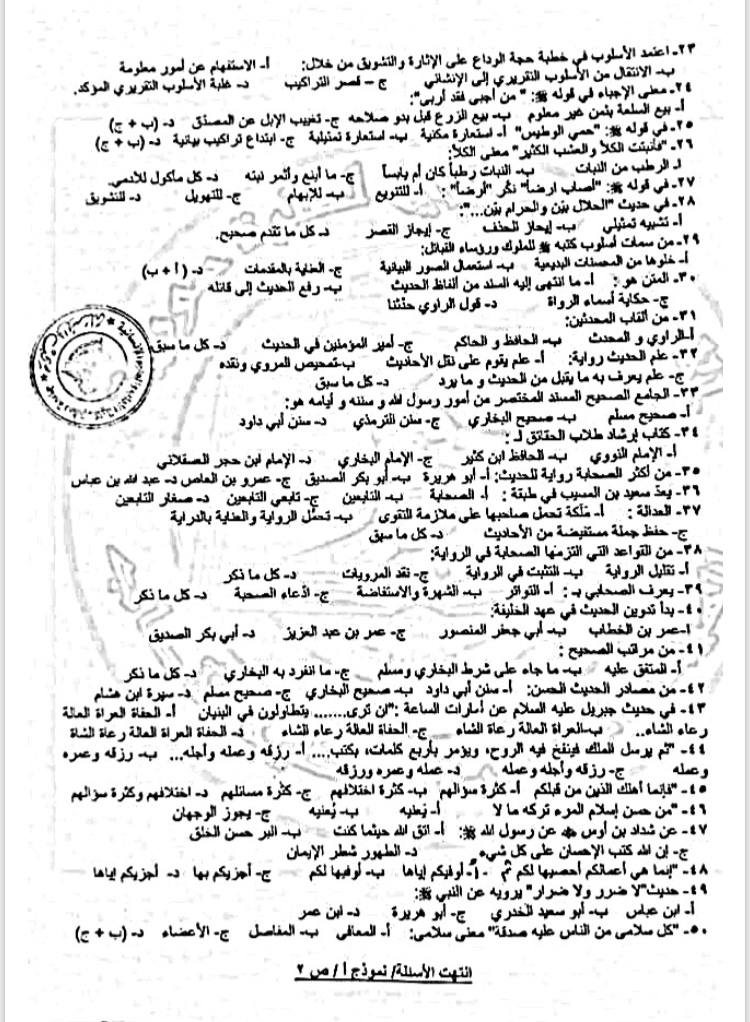 ٢٣- اعتمد الأسلوب في خطبة حجة الوداع على الإثارة والتشويق من خلال: أ- الاستفهام عن أمور معلومة
ب- الانتقال من الأسلوب التقريري إلى الإنشائي ج – قصر التراكيب د- غلبة الأسلوب التقريري المؤكد.
٢٤- معنى الإجباء في قوله ﷺ: "من أجبى فقد أربى":
أ- بيع السلعة بثمن غير معلوم ب- بيع الزرع قبل بدو صلاحه ج- تغييب الإبل عن المصدّق د- (ب + ج)
٢٥- في قوله ﷺ: "حمي الوطيس" أ- استعارة مكنية ب- استعارة تمثيلية ج- ابتداع تراكيب بيانية د- (ب + ج)
٢٦- "فأنبتت الكلأ والعشب الكثير" معنى الكلأ:
أ- الرطب من النبات ب- النبات رطباً كان أم يابساً ج- ما أينع وأثمر نبته د- كل مأكول للآدمي.
٢٧- في قوله ﷺ: "أصاب ارضاً" نكّر "أرضاً": أ- للتنويع ب- للإبهام ج- للتهويل د- للتشويق
٢٨- في حديث "الحلال بيّن والحرام بيّن...":
أ- تشبيه تمثيلي ب- إيجاز الحذف ج- إيجاز القصر د- كل ما تقدم صحيح.
٢٩- من سمات أسلوب كتبه ﷺ للملوك ورؤساء القبائل:
أ- خلوها من المحسنات البديعية ب- استعمال الصور البيانية ج- العناية بالمقدمات د- (أ + ب)
٣٠- المتن هو: أ- ما انتهى إليه السند من ألفاظ الحديث ب- رفع الحديث إلى قائله
ج- حكاية أسماء الرواة د- قول الراوي حدثنا
٣١- من ألقاب المحدثين:
أ-الراوي و المحدث ب- الحافظ و الحاكم ج- أمير المؤمنين في الحديث د- كل ما سبق
٣٢- علم الحديث رواية: أ- علم يقوم على نقل الأحاديث ب-تمحيص المروي ونقده
ج- علم يعرف به ما يقبل من الحديث و ما يرد د- كل ما سبق
٣٣- الجامع الصحيح المسند المختصر من أمور رسول الله و سننه و أيامه هو:
أ- صحيح مسلم ب- صحيح البخاري ج- سنن الترمذي د- سنن أبي داود
٣٤- كتاب إرشاد طلاب الحقائق لـ:
أ- الإمام النووي ب- الحافظ ابن كثير ج- الإمام البخاري د- الإمام ابن حجر العسقلاني
٣٥- من أكثر الصحابة رواية للحديث: أ- أبو هريرة ب- أبو بكر الصديق ج- عمرو بن العاص د- عبد الله بن عباس
٣٦- يعدّ سعيد بن المسيب في طبقة: أ- الصحابة ب- التابعين ج- تابعي التابعين د- صغار التابعين
٣٧- العدالة: أ- مَلَكة تحمل صاحبها على ملازمة التقوى ب- تحمّل الرواية والعناية بالدراية
ج- حفظ جملة مستفيضة من الأحاديث د- كل ما سبق
٣٨- من القواعد التي التزمها الصحابة في الرواية:
أ- تقليل الرواية ب- التثبت في الرواية ج- نقد المرويات د- كل ما ذكر
٣٩- يعرف الصحابي بـ: أ- التواتر ب- الشهرة والاستفاضة ج- ادّعاء الصحبة د- كل ما ذكر
٤٠- بدأ تدوين الحديث في عهد الخليفة:
أ-عمر بن الخطاب ب- أبي جعفر المنصور ج- عمر بن عبد العزيز د- أبي بكر الصديق
٤١- من مراتب الصحيح:
أ- المتفق عليه ب- ما جاء على شرط البخاري ومسلم ج- ما انفرد به البخاري د- كل ما ذكر
٤٢- من مصادر الحديث الحسن: أ- سنن أبي داود ب- صحيح البخاري ج- صحيح مسلم د- سيرة ابن هشام
٤٣- في حديث جبريل عليه السلام عن أمارات الساعة: "ان ترى....... يتطاولون في البنيان أ- الحفاة العراة العالة
رعاء الشاء.. ب-العراة العالة رعاة الشاء ج- الحفاة العالة رعاء الشاء د- الحفاة العراة العالة رعاة الشاة
٤٤- "ثم يرسل الملك فينفخ فيه الروح، ويؤمر بأربع كلمات، بكتب.... أ- رزقه وعمله وأجله... ب- رزقه وعمره
وعمله ج- رزقه وأجله وعمله د- عمله وعمره ورزقه
٤٥- "فإنما أهلك الذين من قبلكم أ- كثرة سؤالهم ب- كثرة اختلافهم ج- كثرة مسائلهم د- اختلافهم وكثرة سؤالهم
٤٦- "من حسن إسلام المرء تركه ما لا أ- يَعنيه ب- يُعنيه ج- يجوز الوجهان
٤٧- عن شداد بن أوس عن رسول الله ﷺ: أ- اتق الله حيثما كنت ب- البر حسن الخلق
ج- إن الله كتب الإحسان على كل شيء د- الطهور شطر الإيمان
٤٨- "إنما هي أعمالكم أحصيها لكم ثم - أ- أوفيكم إياها ب- أوفيها لكم ج- أجزيكم بها د- أجزيكم إياها
٤٩- حديث"لا ضرر ولا ضرار" يرويه عن النبي ﷺ:
أ- ابن عباس ب- أبو سعيد الخدري ج- أبو هريرة د- ابن عمر
٥٠- "كل سلامى من الناس عليه صدقة" معنى سلامى: أ- المعافى ب- المفاصل ج- الأعضاء د- (ب + ج)
انتهت الأسئلة/ نموذج أ / ص ٢